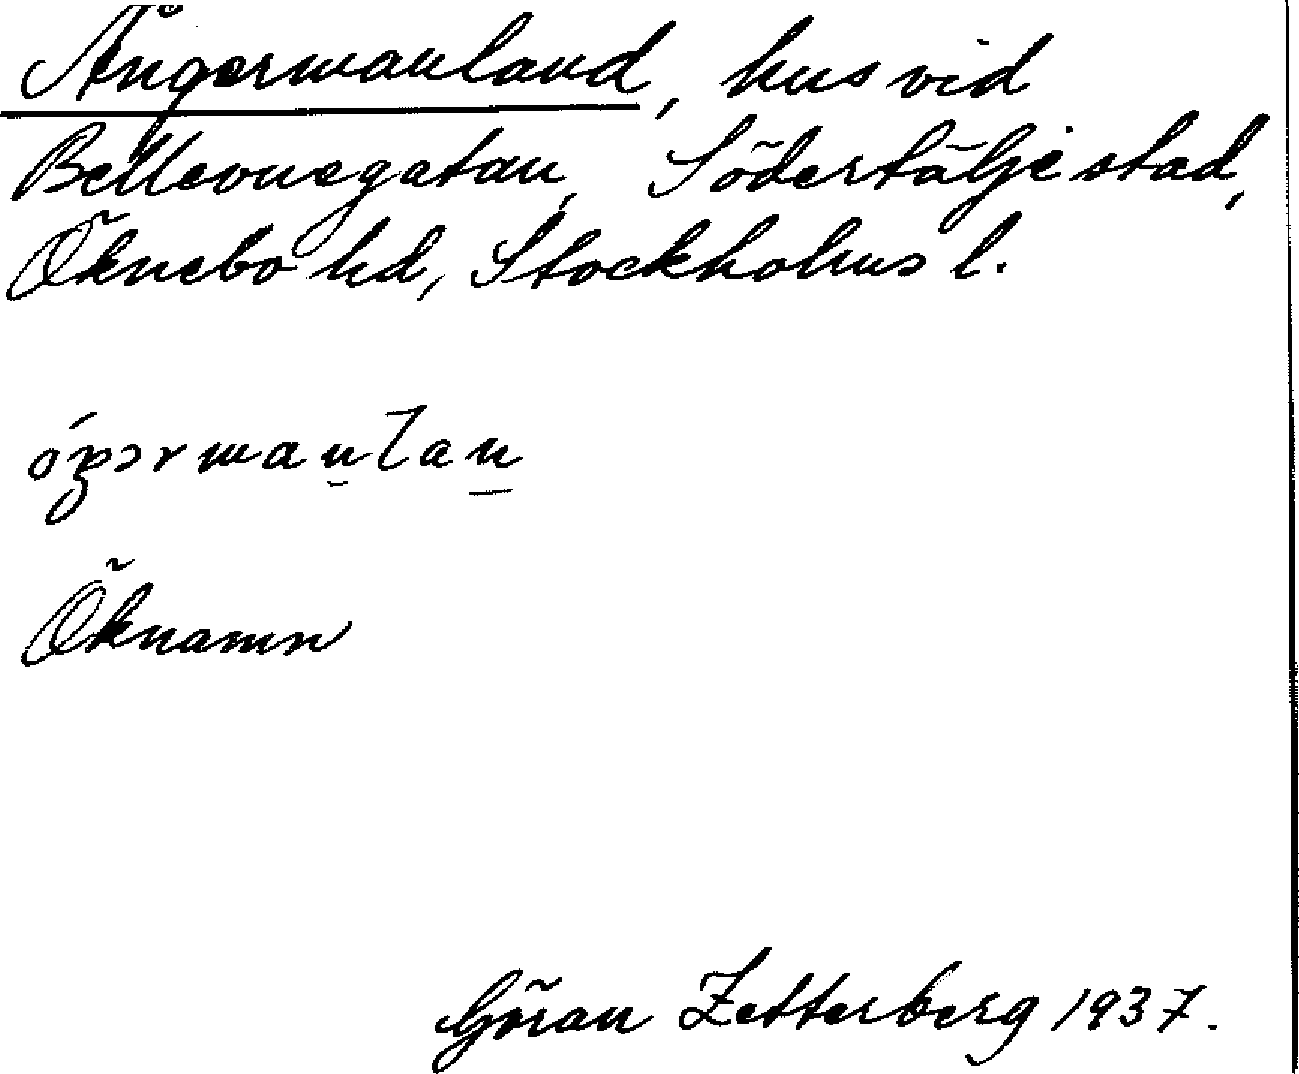 Ångermanland, hus vid
Bellevuegatan, Södertälje stad,
Öknebo hd, Stockholms l.
Öknamn
Göran Zetterberg 1937.